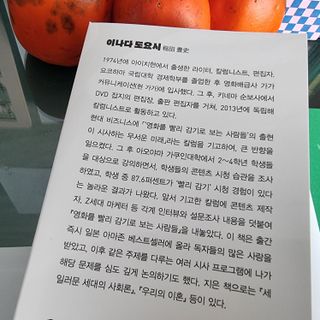 이나다 도요시 稲田 豊史
1974년에 아이치현에서 출생한 라이터, 칼럼니스트, 편집자.
요코하마 국립대학 경제학부를 졸업한 후 영화배급사 가가
커뮤니케이션(현 가가)에 입사했다. 그 후, 키네마 순보사에서
DVD 잡지의 편집장, 출판 편집자를 거쳐, 2013년에 독립해
칼럼니스트로 활동하고 있다.
현대 비즈니스에 「'영화를 빨리 감기로 보는 사람들'의 출현
이 시사하는 무서운 미래」라는 칼럼을 기고하여, 큰 반향을
일으켰다. 그 후 아오야마 가쿠인대학에서 2~4학년 학생들
을 대상으로 강의하면서, 학생들의 콘텐츠 시청 습관을 조사
하였고, 학생 중 87.6퍼센트가 '빨리 감기' 시청 경험이 있다
는 놀라운 결과가 나왔다. 앞서 기고한 칼럼에 콘텐츠 제작
자, Z세대 마케터 등 각계 인터뷰와 설문조사 내용을 덧붙여
『영화를 빨리 감기로 보는 사람들』을 내놓았다. 이 책은 출간
즉시 일본 아마존 베스트셀러에 올라 독자들의 많은 사랑을
받았고, 이후 같은 주제를 다루는 여러 시사 프로그램에 나가
해당 문제를 심도 깊게 논의하기도 했다. 지은 책으로는 『세
일러문 세대의 사회론』, 『우리의 이혼』 등이 있다.